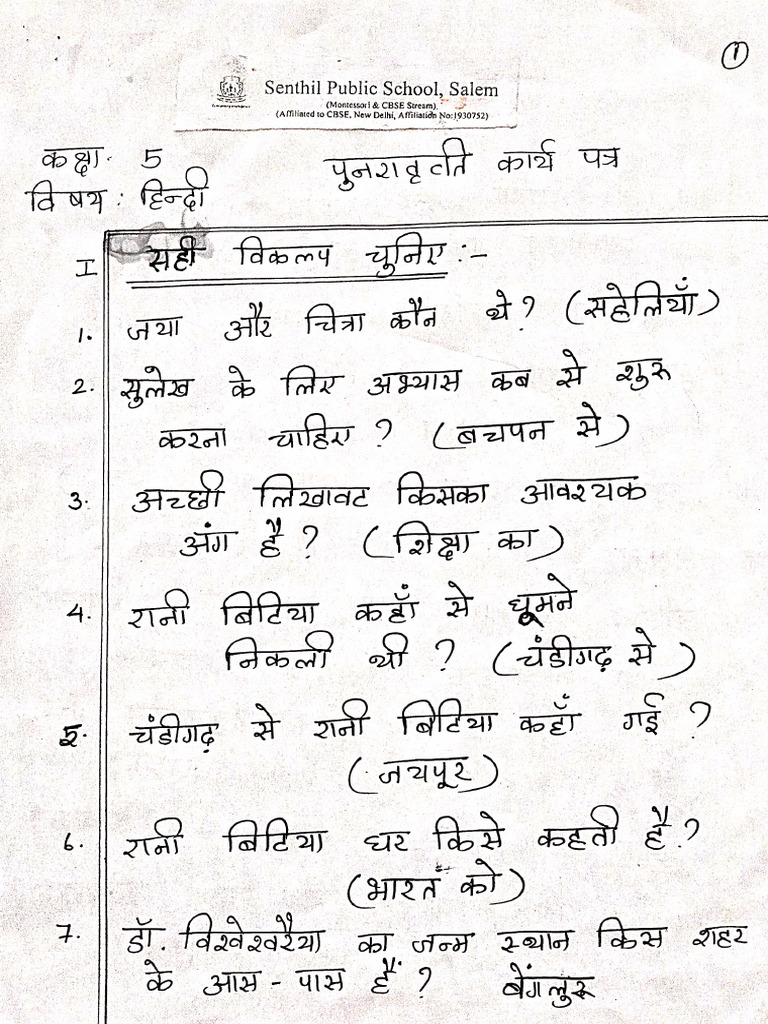 1
Senthil Public School, Salem
(Montessori & CBSE Stream)
(Affiliated to CBSE, New Delhi, Affiliation No:1930752)
कक्षा. 5 पुनरावृत्ति कार्य पत्र
विषय : हिन्दी
I सही विकल्प चुनिए :-
1. जया और चित्रा कौन थे ? (सहेलियाँ)
2. सुलेख के लिए अभ्यास कब से शुरू
करना चाहिए ? (बचपन से)
3. अच्छी लिखावट किसका आवश्यक
अंग है ? (शिक्षा का)
4. रानी बिटिया कहाँ से घूमने
निकली थी ? (चंडीगढ़ से)
5. चंडीगढ़ से रानी बिटिया कहाँ गई ?
(जयपूर)
6. रानी बिटिया घर किसे कहती है ?
(भारत को)
7. डॉ. विश्वेश्वरैया का जन्म स्थान किस शहर
के आस - पास हैं ? बेंगलुरू